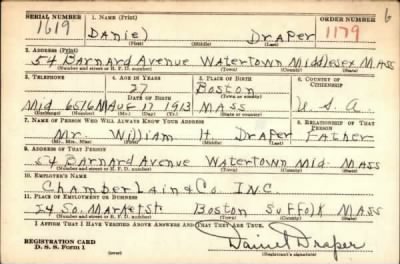 SERIAL NUMBER 1. NAME (Print) ORDER NUMBER 6
1619 Daniel Draper 1179
(First) (Middle) (Last)
2. ADDRESS (Print)
54 Barnard Avenue Watertown Middlesex Mass
(Number and street or R. F. D. number) (Town) (County) (State)
3. TELEPHONE 4. AGE IN YEARS 5. PLACE OF BIRTH 6. COUNTRY OF CITIZENSHIP
27 Boston
DATE OF BIRTH (Town or county)
Mid 6516M Aug 17 1913 Mass U.S.A.
(Exchange) (Number) (Mo.) (Day) (Yr.) (State or country)
7. NAME OF PERSON WHO WILL ALWAYS KNOW YOUR ADDRESS 8. RELATIONSHIP OF THAT PERSON
Mr. William H. Draper Father
(Mr., Mrs., Miss) (First) (Middle) (Last)
9. ADDRESS OF THAT PERSON
54 Barnard Avenue Watertown Mid- Mass
(Number and street or R. F. D. number) (Town) (County) (State)
10. EMPLOYER'S NAME
Chamberlain & Co. Inc.
11. PLACE OF EMPLOYMENT OR BUSINESS
24 So. Market St. Boston Suffolk Mass
(Number and street or R. F. D. number) (Town) (County) (State)
I AFFIRM THAT I HAVE VERIFIED ABOVE ANSWERS AND THAT THEY ARE TRUE.
REGISTRATION CARD
D. S. S. Form 1 Daniel Draper
(Registrant's signature)